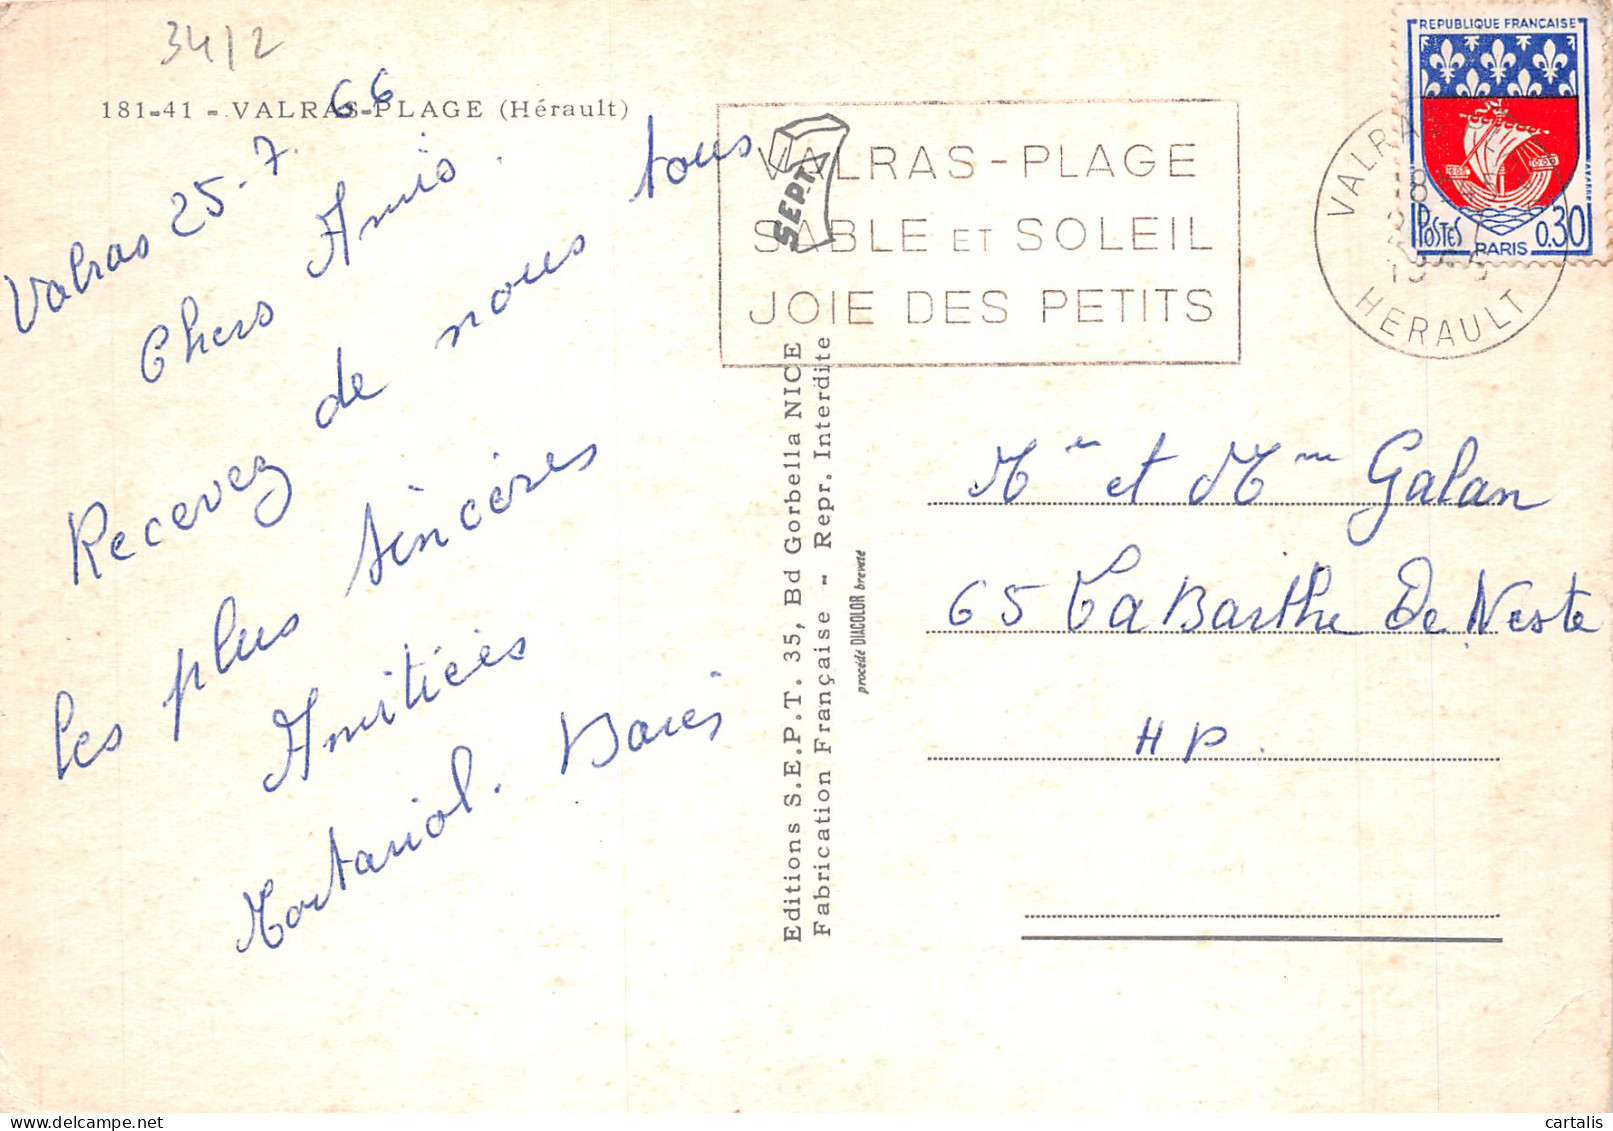 34/2
181-41 - VALRAS-PLAGE (Hérault)
Valras 25-7. 66
Chers Amis.
Recevez de nous tous
les plus sincères
Amitiées
Editions S.E.P.T. 35, Bd Gorbella NICE
Fabrication Française - Repr. Interdite
procédé DIACOLOR breveté
SEPT
VALRAS-PLAGE
SABLE ET SOLEIL
JOIE DES PETITS
VALRAS
HERAULT
REPUBLIQUE FRANÇAISE
POSTES PARIS 0,30
Mr et Mme Galan
65 La Barthe De Neste
HP.
cartalis